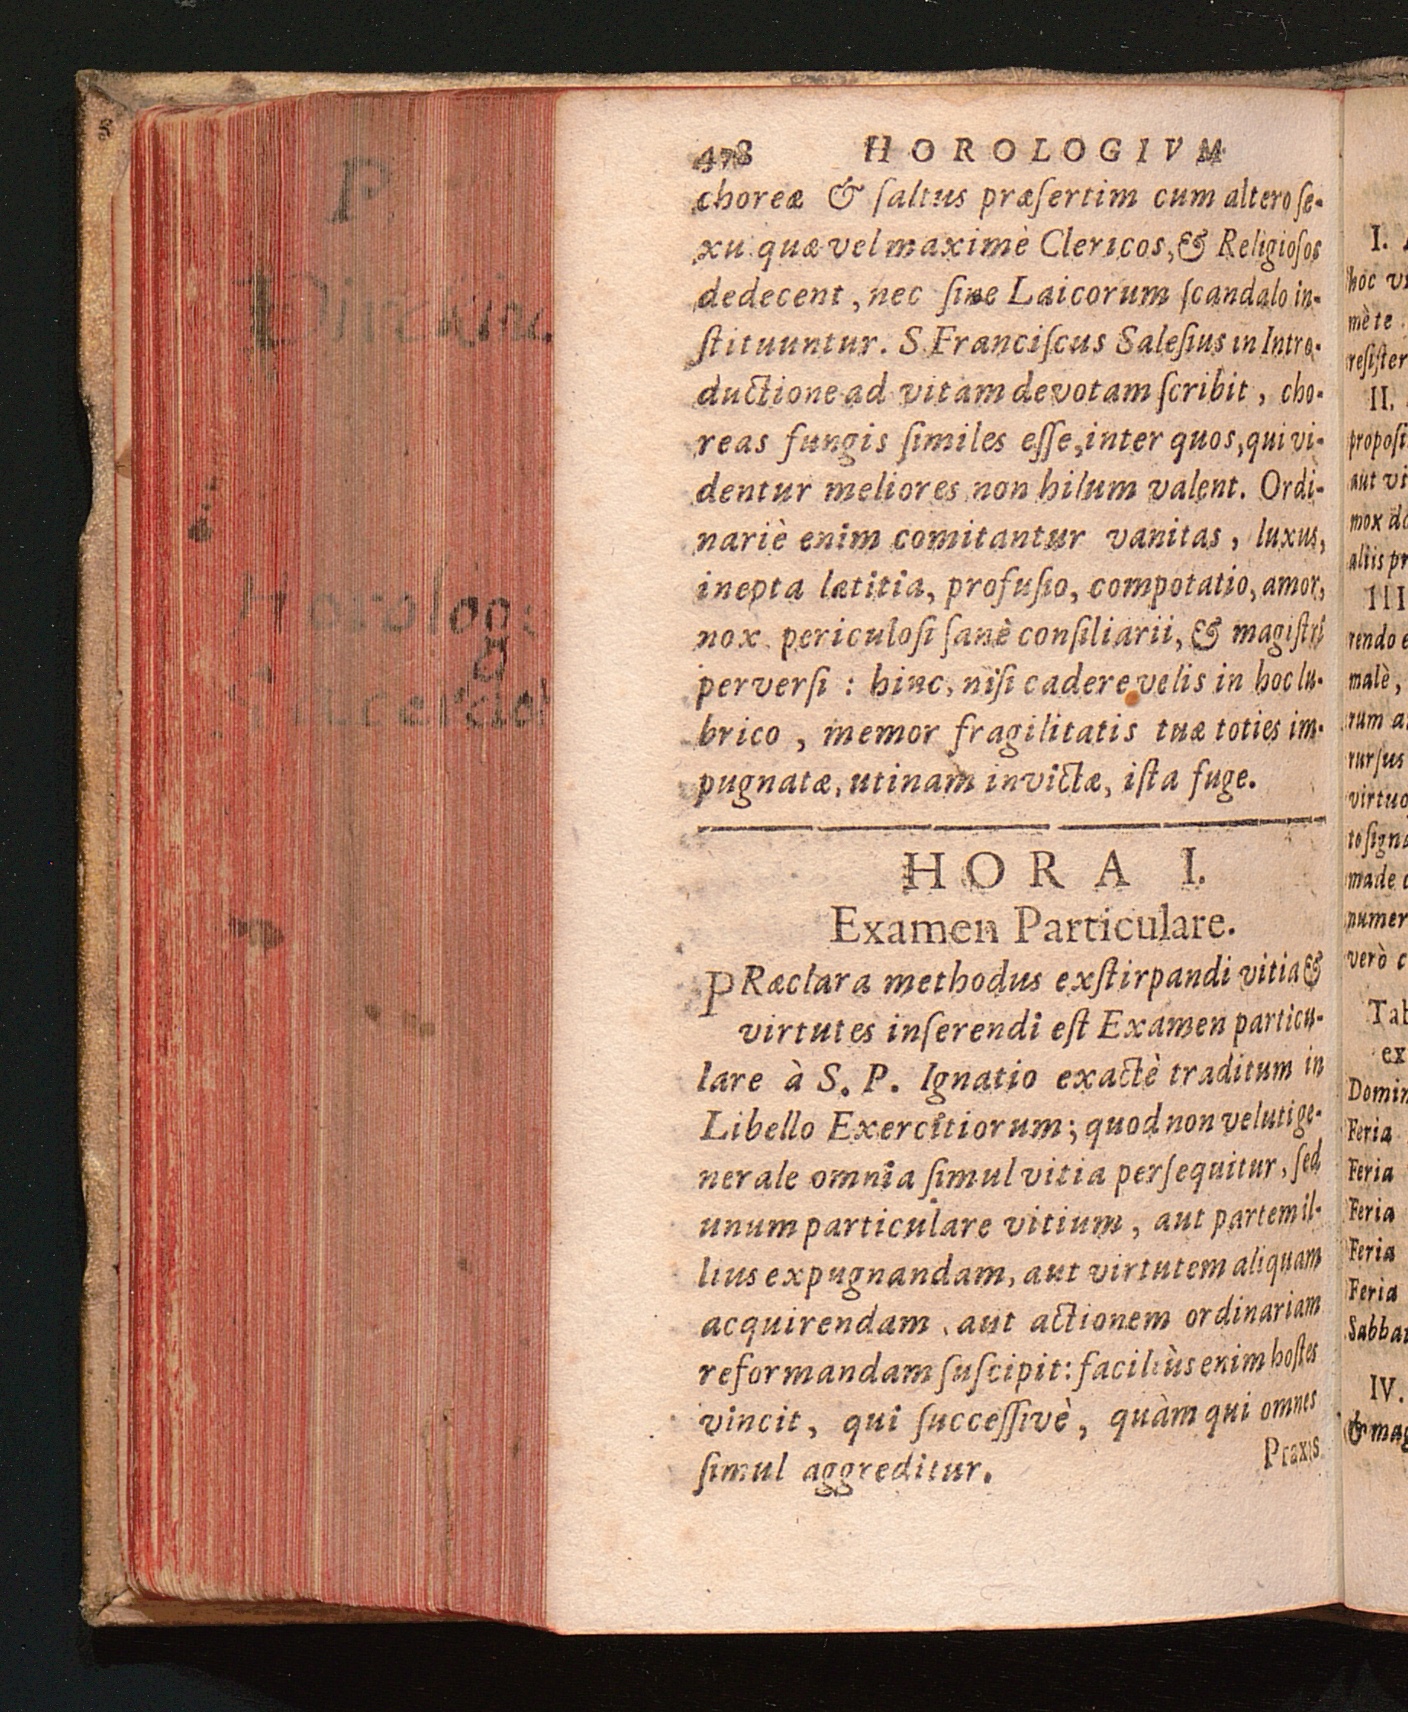 478 HOROLOGIVM
choreæ & ſaltus præſertim cum altero ſe-
xu quæ vel maximè Clericos, & Religioſos
dedecent, nec ſine Laicorum ſcandalo in-
ſtituuntur. S. Franciſcus Saleſius in Intro-
ductione ad vitam devotam ſcribit, cho-
reas fungis ſimiles eſſe, inter quos, qui vi-
dentur meliores non hilum valent. Ordi-
nariè enim comitantur vanitas, luxus,
inepta lætitia, profuſio, compotatio, amor,
nox periculoſi ſanè conſiliarii, & magiſtri
perverſi : hinc, niſi cadere velis in hoc lu-
brico, memor fragilitatis tuæ toties im-
pugnatæ, utinam invictæ, iſta fuge.
HORA I.
Examen Particulare.
PRæclara methodus exſtirpandi vitia &
virtutes inſerendi eſt Examen particu-
lare à S. P. Ignatio exactè traditum in
Libello Exercitiorum; quod non velut ge-
nerale omnia ſimul vitia perſequitur, ſed
unum particulare vitium, aut partem il-
lius expugnandam, aut virtutem aliquam
acquirendam, aut actionem ordinariam
reformandam ſuſcipit: faciliùs enim hoſtes
vincit, qui ſucceſſivè, quàm qui omnes
ſimul aggreditur.
Praxis
I.
hoc
mète
II.
aut
mox
III
rendo
malè,
rum
rurſus
numer
verò
Feria
Feria
Feria
Feria
Feria
IV.
P